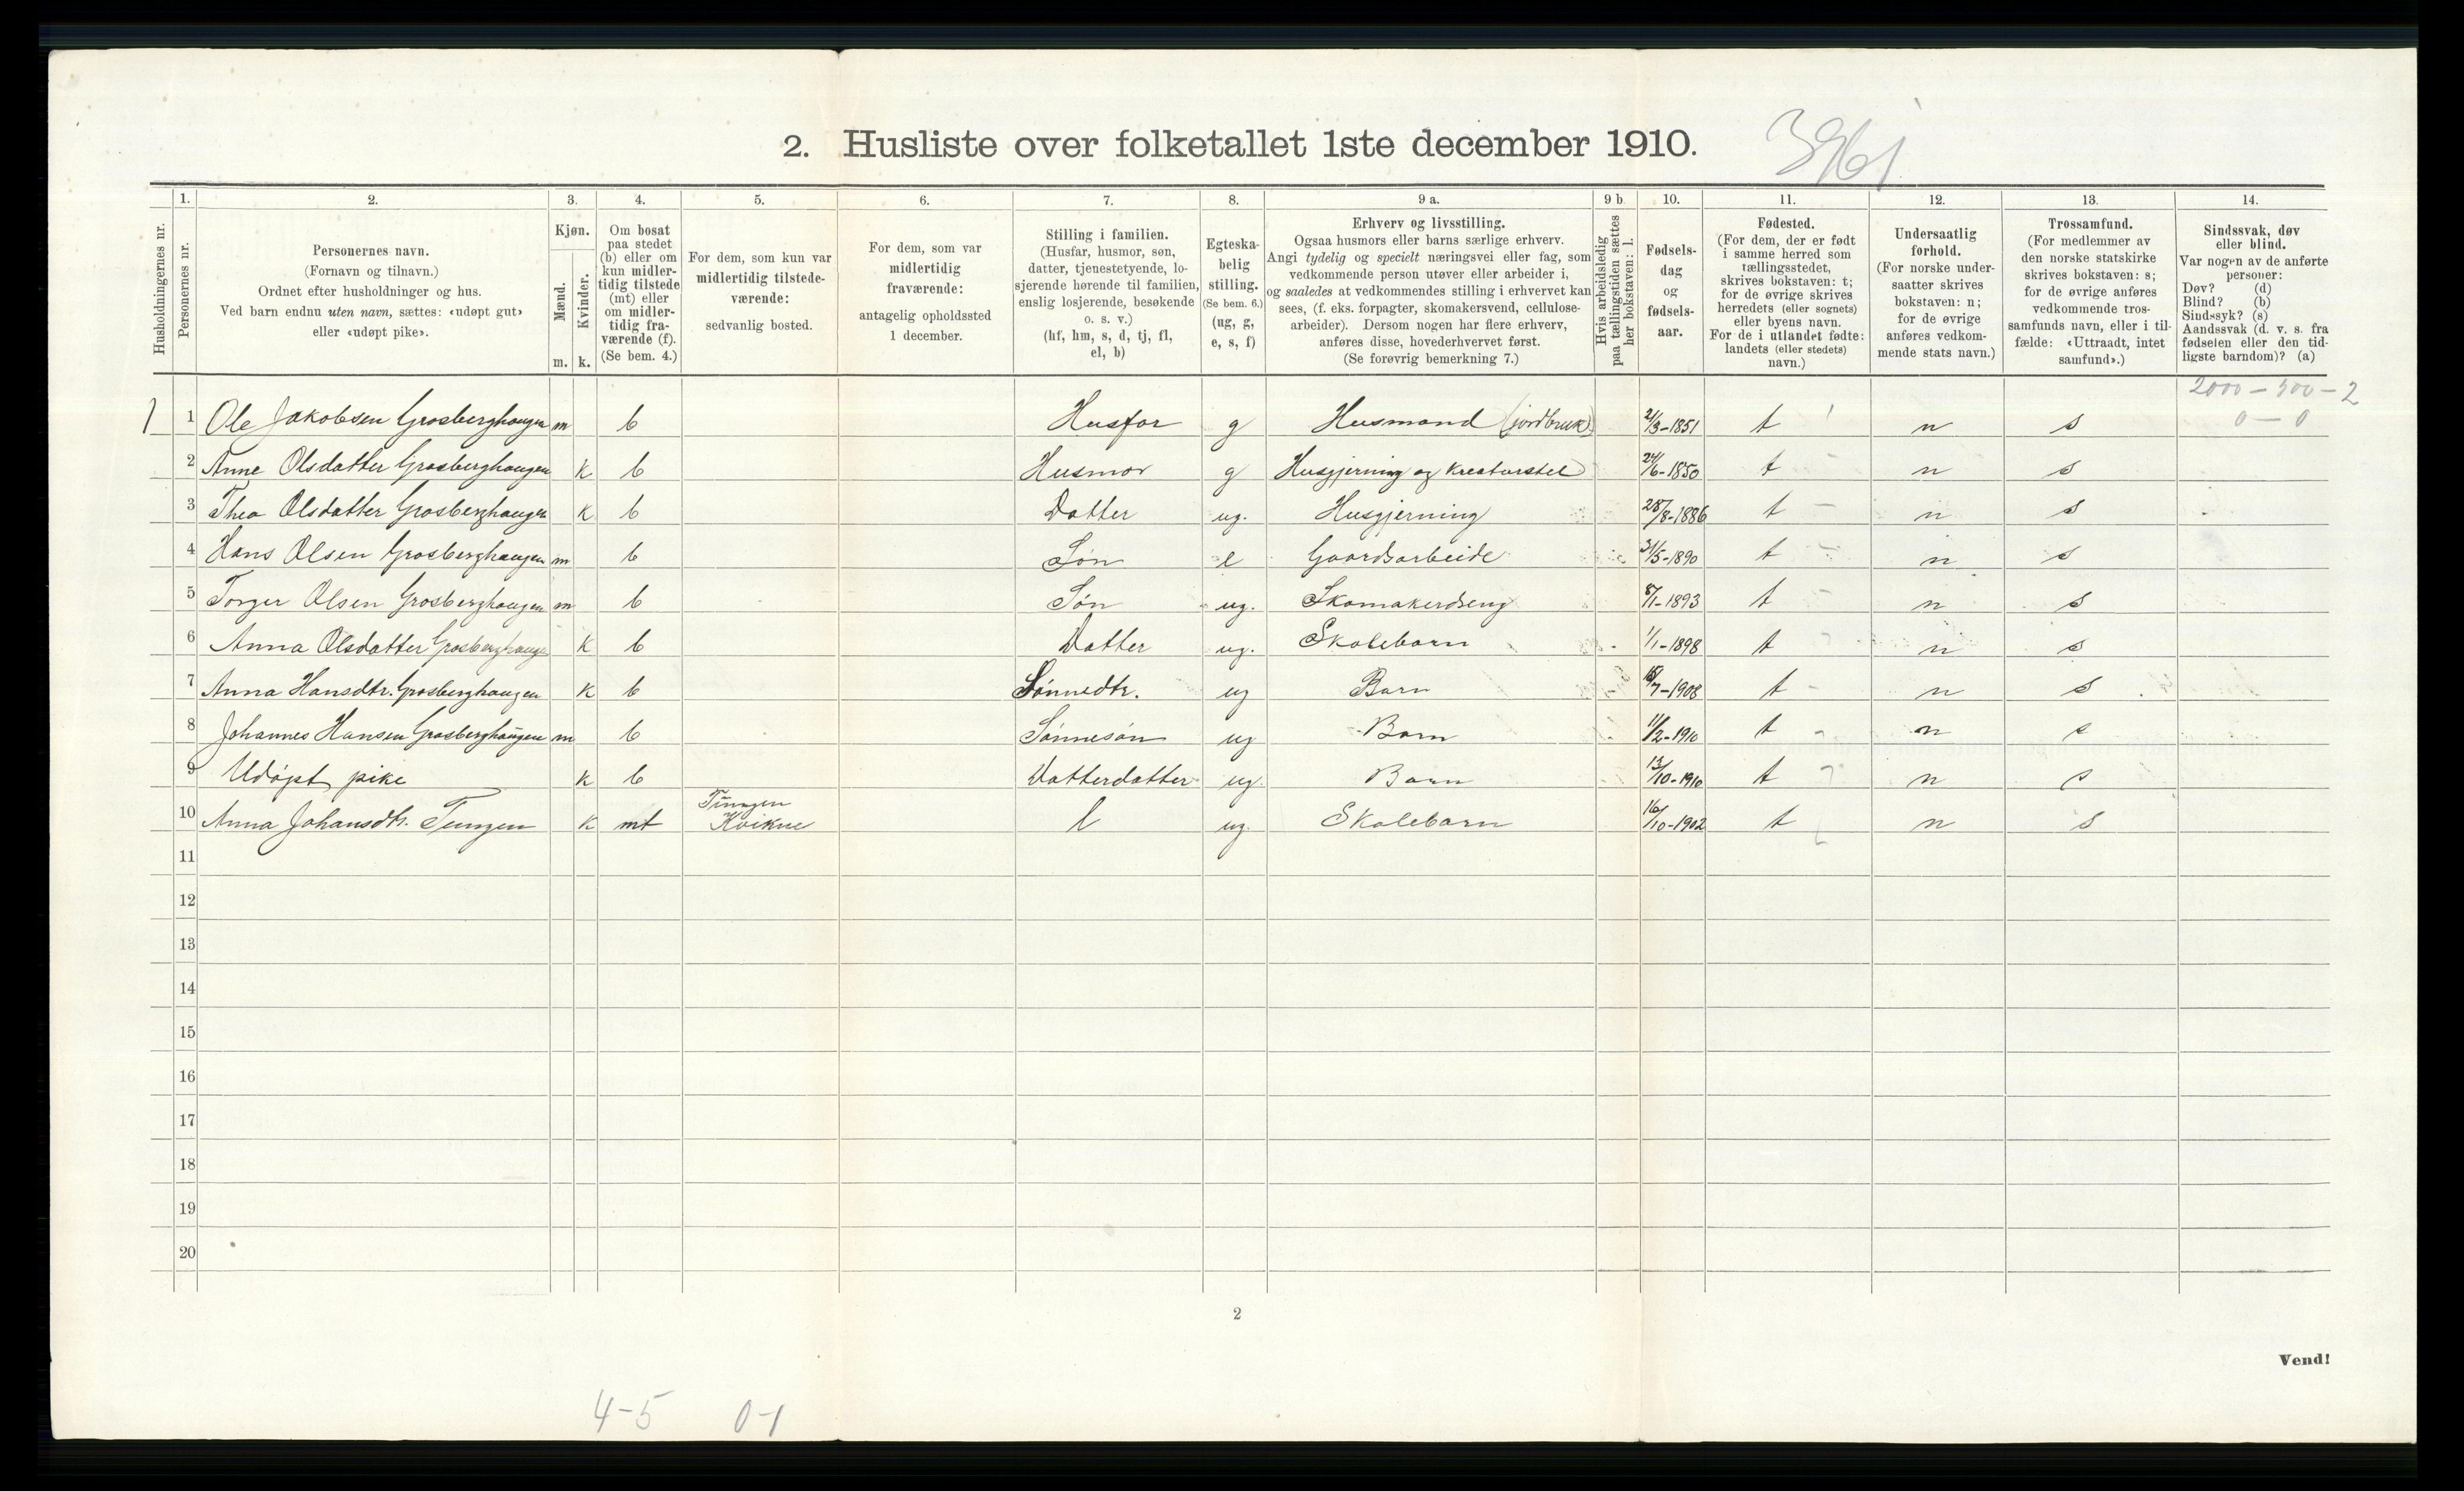 2. Husliste over folketallet 1ste december 1910.
3961
Husholdningernes nr.
1. Personernes nr.
2. Personernes navn.
(Fornavn og tilnavn.)
Ordnet efter husholdninger og hus.
Ved barn endnu uten navn, sættes: «udøpt gut»
eller «udøpt pike».
3. Kjøn.
Mænd. m.
Kvinder. k.
4. Om bosat
paa stedet
(b) eller om
kun midler-
tidig tilstede
(mt) eller
om midler-
tidig fra-
værende (f).
(Se bem. 4.)
5. For dem, som kun var
midlertidig tilstede-
værende:
sedvanlig bosted.
6. For dem, som var
midlertidig
fraværende:
antagelig opholdssted
1 december.
7. Stilling i familien.
(Husfar, husmor, søn,
datter, tjenestetyende, lo-
sjerende hørende til familien,
enslig losjerende, besøkende
o. s. v.)
(hf, hm, s, d, tj, fl,
el, b)
8. Egteska-
belig
stilling.
(Se bem. 6.)
(ug, g,
e, s, f)
9 a. Erhverv og livsstilling.
Ogsaa husmors eller barns særlige erhverv.
Angi tydelig og specielt næringsvei eller fag, som
vedkommende person utøver eller arbeider i,
og saaledes at vedkommendes stilling i erhvervet kan
sees, (f. eks. forpagter, skomakersvend, cellulose-
arbeider). Dersom nogen har flere erhverv,
anføres disse, hovederhvervet først.
(Se forøvrig bemerkning 7.)
9 b. Hvis arbeidsledig
paa tællingstiden sættes
her bokstaven: l.
10. Fødsels-
dag
og
fødsels-
aar.
11. Fødested.
(For dem, der er født
i samme herred som
tællingsstedet,
skrives bokstaven: t;
for de øvrige skrives
herredets (eller sognets)
eller byens navn.
For de i utlandet fødte:
landets (eller stedets)
navn.)
12. Undersaatlig
forhold.
(For norske under-
saatter skrives
bokstaven: n;
for de øvrige
anføres vedkom-
mende stats navn.)
13. Trossamfund.
(For medlemmer av
den norske statskirke
skrives bokstaven: s;
for de øvrige anføres
vedkommende tros-
samfunds navn, eller i til-
fælde: «Uttraadt, intet
samfund».)
14. Sindssvak, døv
eller blind.
Var nogen av de anførte
personer:
Døv? (d)
Blind? (b)
Sindssyk? (s)
Aandssvak (d. v. s. fra
fødselen eller den tid-
ligste barndom)? (a)
2000 - 500 - 2
0 - 0
1 1 Ole Jakobsen Grosberghaugen m b Husfar g Husmand (jordbruk) 2/3-1851 t n s
2 Anne Olsdatter Grosberghaugen k b Husmor g Husgjerning og Kreaturstel 24/6-1850 t n s
3 Thea Olsdatter Grosberghaugen k b Datter ug. Husgjerning 28/8-1886 t n s
4 Hans Olsen Grosberghaugen m b Søn e Gaardsarbeide 31/5-1890 t n s
5 Torger Olsen Grosberghaugen m b Søn ug. Skomakerdreng 8/1-1893 t n s
6 Anna Olsdatter Grosberghaugen k b Datter ug. Skolebarn 1/1-1898 t n s
7 Anna Hansdtr. Grosberghaugen k b Sønnedtr. ug Barn /7-1908 t n s
8 Johannes Hansen Grosberghaugen m b Sønnesøn ug Barn 11/2-1910 t n s
9 Udøpt pike k b Datterdatter ug. Barn 13/10-1910 t n s
Tungen
10 Anna Johansdtr. Tungen k mt Kvikne l ug. Skolebarn 16/10-1902 t n s
11
12
13
14
15
16
17
18
19
20
2
Vend!
4-5 0-1